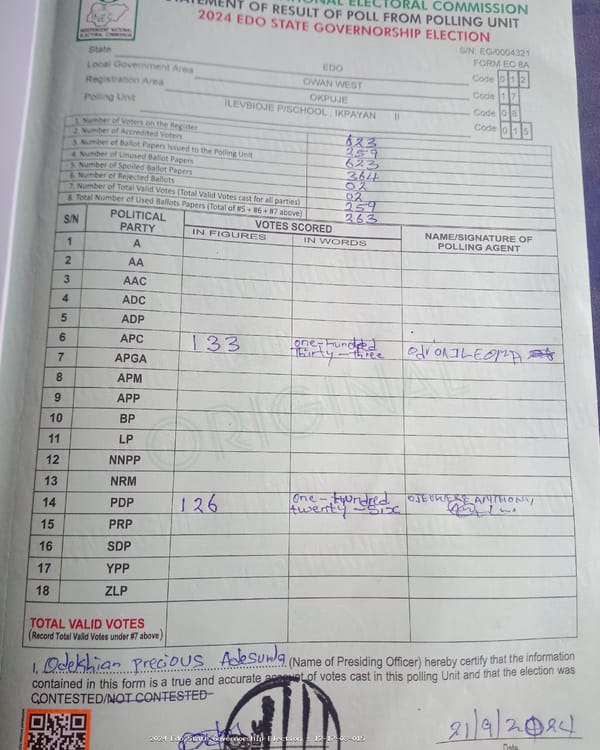 INEC
INDEPENDENT NATIONAL ELECTORAL COMMISSION
NATIONAL ELECTORAL COMMISSION
STATEMENT OF RESULT OF POLL FROM POLLING UNIT
2024 EDO STATE GOVERNORSHIP ELECTION
S/N: EG/0004321
FORM EC 8A
State EDO Code 012
Local Government Area OWAN WEST Code 17
Registration Area OKPUJE Code 08
Polling Unit ILEVBIOJE P/SCHOOL , IKPAYAN II Code 015
1. Number of Voters on the Register 623
2. Number of Accredited Voters 259
3. Number of Ballot Papers Issued to the Polling Unit 623
4. Number of Unused Ballot Papers 364
5. Number of Spoiled Ballot Papers 02
6. Number of Rejected Ballots 02
7. Number of Total Valid Votes (Total Valid Votes cast for all parties) 259
8. Total Number of Used Ballots Papers (Total of #5 + #6 + #7 above) 263
S/N POLITICAL PARTY VOTES SCORED NAME/SIGNATURE OF POLLING AGENT
IN FIGURES IN WORDS
1 A
2 AA
3 AAC
4 ADC
5 ADP
6 APC 133 one-hundred thirty-three
7 APGA
8 APM
9 APP
10 BP
11 LP
12 NNPP
13 NRM
14 PDP 126 one-hundred twenty-six ANTHONY
15 PRP
16 SDP
17 YPP
18 ZLP
ORIGINAL
TOTAL VALID VOTES
(Record Total Valid Votes under #7 above)
I, Odekhian precious Adesuwa (Name of Presiding Officer) hereby certify that the information
contained in this form is a true and accurate account of votes cast in this polling Unit and that the election was
CONTESTED/NOT CONTESTED
21/9/2024
Date
2024 Edo State Governorship Election - 12-17-08-015